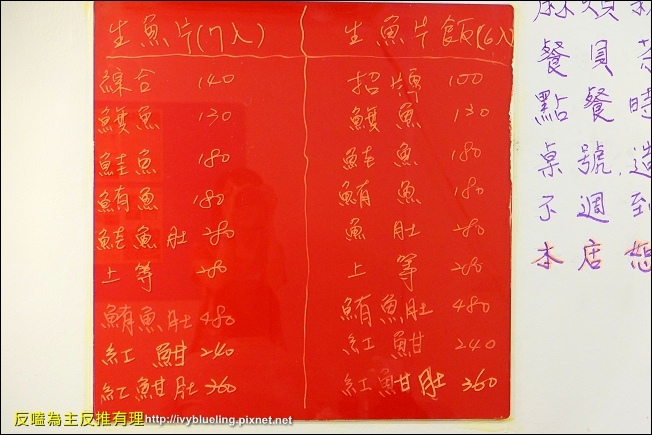 生魚片(7入)
綜合 140
鱆魚 130
鮭魚 180
鮪魚 180
鮭魚肚 280
上等 280
鮪魚肚 480
紅魽 240
紅魽肚 360
生魚片飯(6入)
招牌 100
鱆魚 130
鮭魚 180
鮪魚 180
魚肚 280
上等 280
鮪魚肚 480
紅魽 240
紅魽肚 360
麻煩
餐員茶
點餐時
桌號,造
不週到
本店恕
反嗑為主反推有理http://ivyblueling.pixnet.net